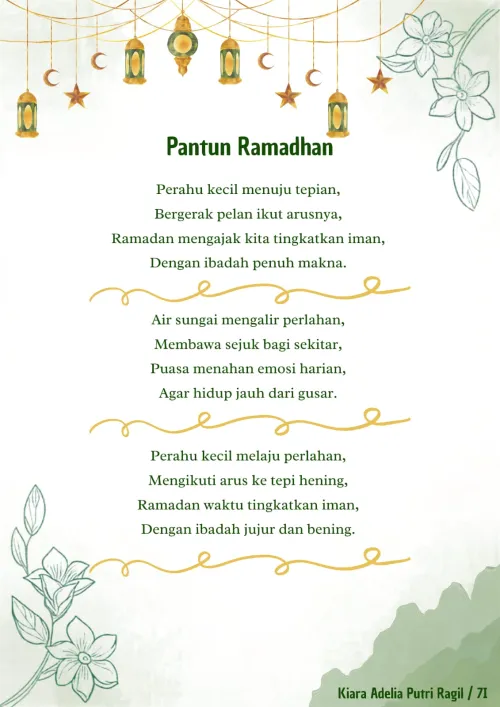 Pantun Ramadhan
Perahu kecil menuju tepian,
Bergerak pelan ikut arusnya,
Ramadan mengajak kita tingkatkan iman,
Dengan ibadah penuh makna.
Air sungai mengalir perlahan,
Membawa sejuk bagi sekitar,
Puasa menahan emosi harian,
Agar hidup jauh dari gusar.
Perahu kecil melaju perlahan,
Mengikuti arus ke tepi hening,
Ramadan waktu tingkatkan iman,
Dengan ibadah jujur dan bening.
Kiara Adelia Putri Ragil / 7I